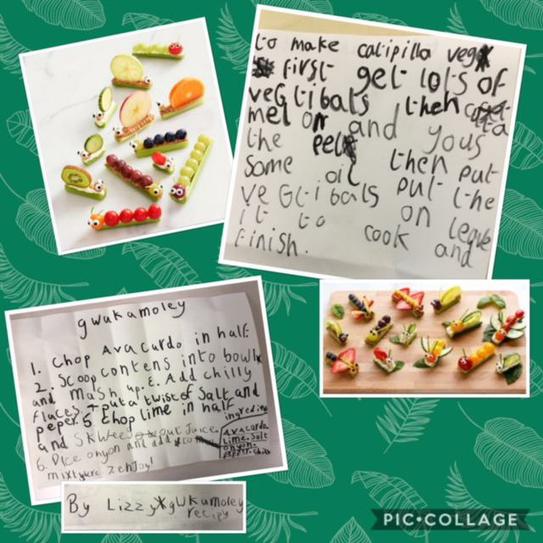 to make catipilla vegx
first get lots of
vegtibals then
melon and yous
the peel
some oil then put
veGtibals put the
it to on leave
finish. cook and
gwukamoley
1. Chop Avacardo in half
2. Scoop contens into bowl
and mash up. E. Add chilly
flaces + put a twist of salt and
peper. 5 chop lime in half
and Skweez out Juice.
6. Dice onyon and add
mixtyure Zenjoy!
ingredine
Avacardo
Lime. Salt
onyon.
peper. chilli
By Lizzy gwukamoley
recipy
PIC•COLLAGE